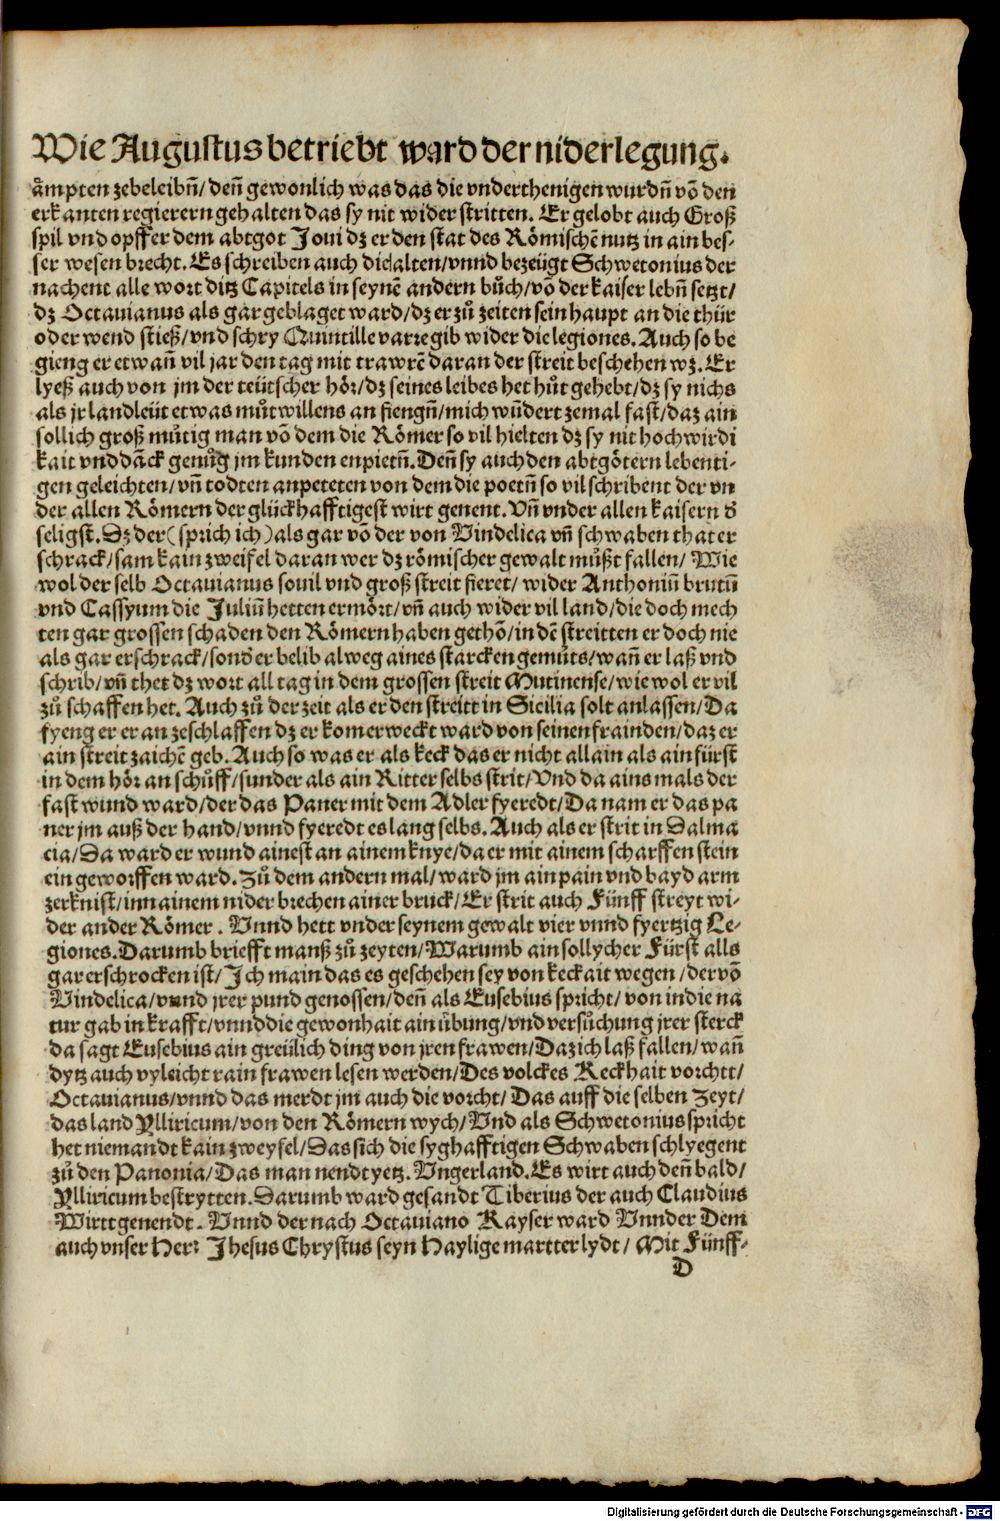 Wie Augustus betriebt ward der niderlegung.
ämpten zebeleibn̄/ den̄ gewonlich was das die vnderthenigen wurdn̄ vō den
erkanten regierern gehalten das sy nit wider stritten. Er gelobt auch Groß
spil vnd opffer dem abtgot Joui dz er den stat des Römischē nutz in ain bes-
ser wesen brecht. Es schreiben auch die alten/vnnd bezeügt Schwetonius der
nachent alle wort ditz Capitels in seynē andern bůch/vō der kaiser lebn̄ setzt/
dz Octauianus als gar geblaget ward/dz er zů zeiten sein haupt an die thür
oder wend stieß/vnd schry Quintille varre gib wider die legiones. Auch so be
gieng er etwan̄ vil jar den tag mit trawrē daran der streit beschehen wz. Er
lyeß auch von jm der teütscher hör/dz seines leibes het hůt gehebt/dz sy nichs
als jr landleüt etwas můtwillens an fiengn̄/mich wūdert zemal fast/daz ain
sollich groß můtig man vō dem die Römer so vil hielten dz sy nit hochwirdi
kait vnd dāck genůg jm kunden enpietn̄. Den̄ sy auch den abtgötern lebenti-
gen geleichten/vn̄ todten anpeteten von dem die poetn̄ so vil schribent der vn
der allen Römern der glückhafftigest wirt genent. Vn̄ vnder allen kaisern d̄
seligst. Dz der (sprich ich) als gar vō der von Vindelica vn̄ schwaben that er
schrack/sam kain zweifel daran wer dz römischer gewalt müßt fallen/ Wie
wol der selb Octauianus souil vnd groß streit fieret/ wider Anthoniū brutū
vnd Cassyum die Juliū hetten ermört/vn̄ auch wider vil land/die doch mech
ten gar grossen schaden den Römern haben gethō/in dē streitten er doch nie
als gar erschrack/sond̄er belib alweg aines starcken gemůts/wan̄ er laß vnd
schrib/vn̄ thet dz wort all tag in dem grossen streit Mutinense/wie wol er vil
zů schaffen het. Auch zů der zeit als er den streitt in Sicilia solt anlassen/Da
fyeng er er an zeschlaffen dz er komer weckt ward von seinen frainden/daz er
ain streit zaichē geb. Auch so was er als keck das er nicht allain als ain fürst
in dem hör an schůff/sunder als ain Ritter selbs strit/Vnd da ains mals der
fast wund ward/der das Paner mit dem Adler fyeredt/Da nam er das pa
ner jm auß der hand/vnnd fyeredt es lang selbs. Auch als er strit in Dalma
cia/Da ward er wund ainest an ainem knye/da er mit ainem scharffen stein
ein geworffen ward. Zů dem andern mal/ ward jm ain pain vnd bayd arm
zerknist/inn ainem nider brechen ainer bruck/Er strit auch Fünff streyt wi-
der ander Römer. Vnnd hett vnder seynem gewalt vier vnnd fyertzig Le-
giones. Darumb briefft manß zů zeyten/Warumb ain sollycher Fürst alls
gar erschrocken ist/Ich main das es geschehen sey von keckait wegen/der vō
Vindelica/vnnd jrer pund genossen/den̄ als Eusebius spricht/ von in die na
tur gab in krafft/vnnd die gewonhait ain übung/vnd versůchung jrer sterck
da sagt Eusebius ain greülich ding von jren frawen/Daz ich laß fallen/wan̄
dytz auch vyleicht rain frawen lesen werden/Des volckes Keckhait vorcht/
Octauianus/vnnd das merdt jm auch die vorcht/ Das auff die selben Zeyt/
das land Ylliricum/von den Römern wych/Vnd als Schwetonius spricht
het niemandt kain zweyfel/Das sich die syghafftigen Schwaben schlyegent
zů den Panonia/Das man nendt yetz. Vngerland. Es wirt auch den̄ bald/
Ylliricum bestrytten. Darumb ward gesandt Tiberius der auch Claudius
Wirtt genendt. Vnnd der nach Octauiano Kayser ward Vnnder Dem
auch vnser Herr Jhesus Chrystus seyn Haylige martter lydt/ Mit Fünff-
D
Digitalisierung gefördert durch die Deutsche Forschungsgemeinschaft - DFG